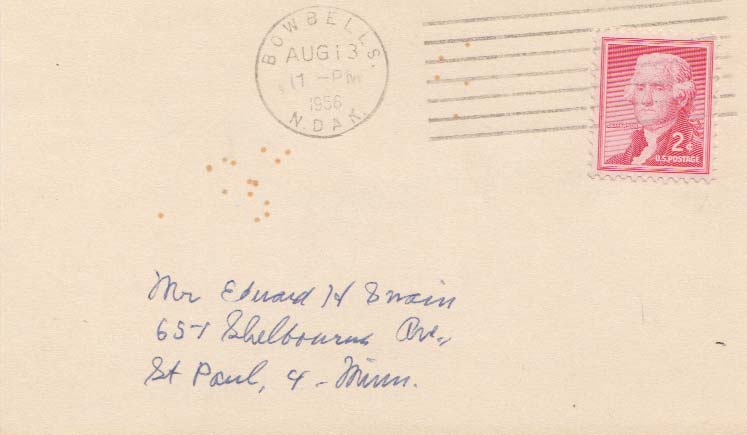 BOWBELLS,
AUG 13
1956
N. DAK.
2¢
U.S. POSTAGE
Mr Edward H Swain
651 Shelbourne Ave.,
St Paul, 4 - Minn.